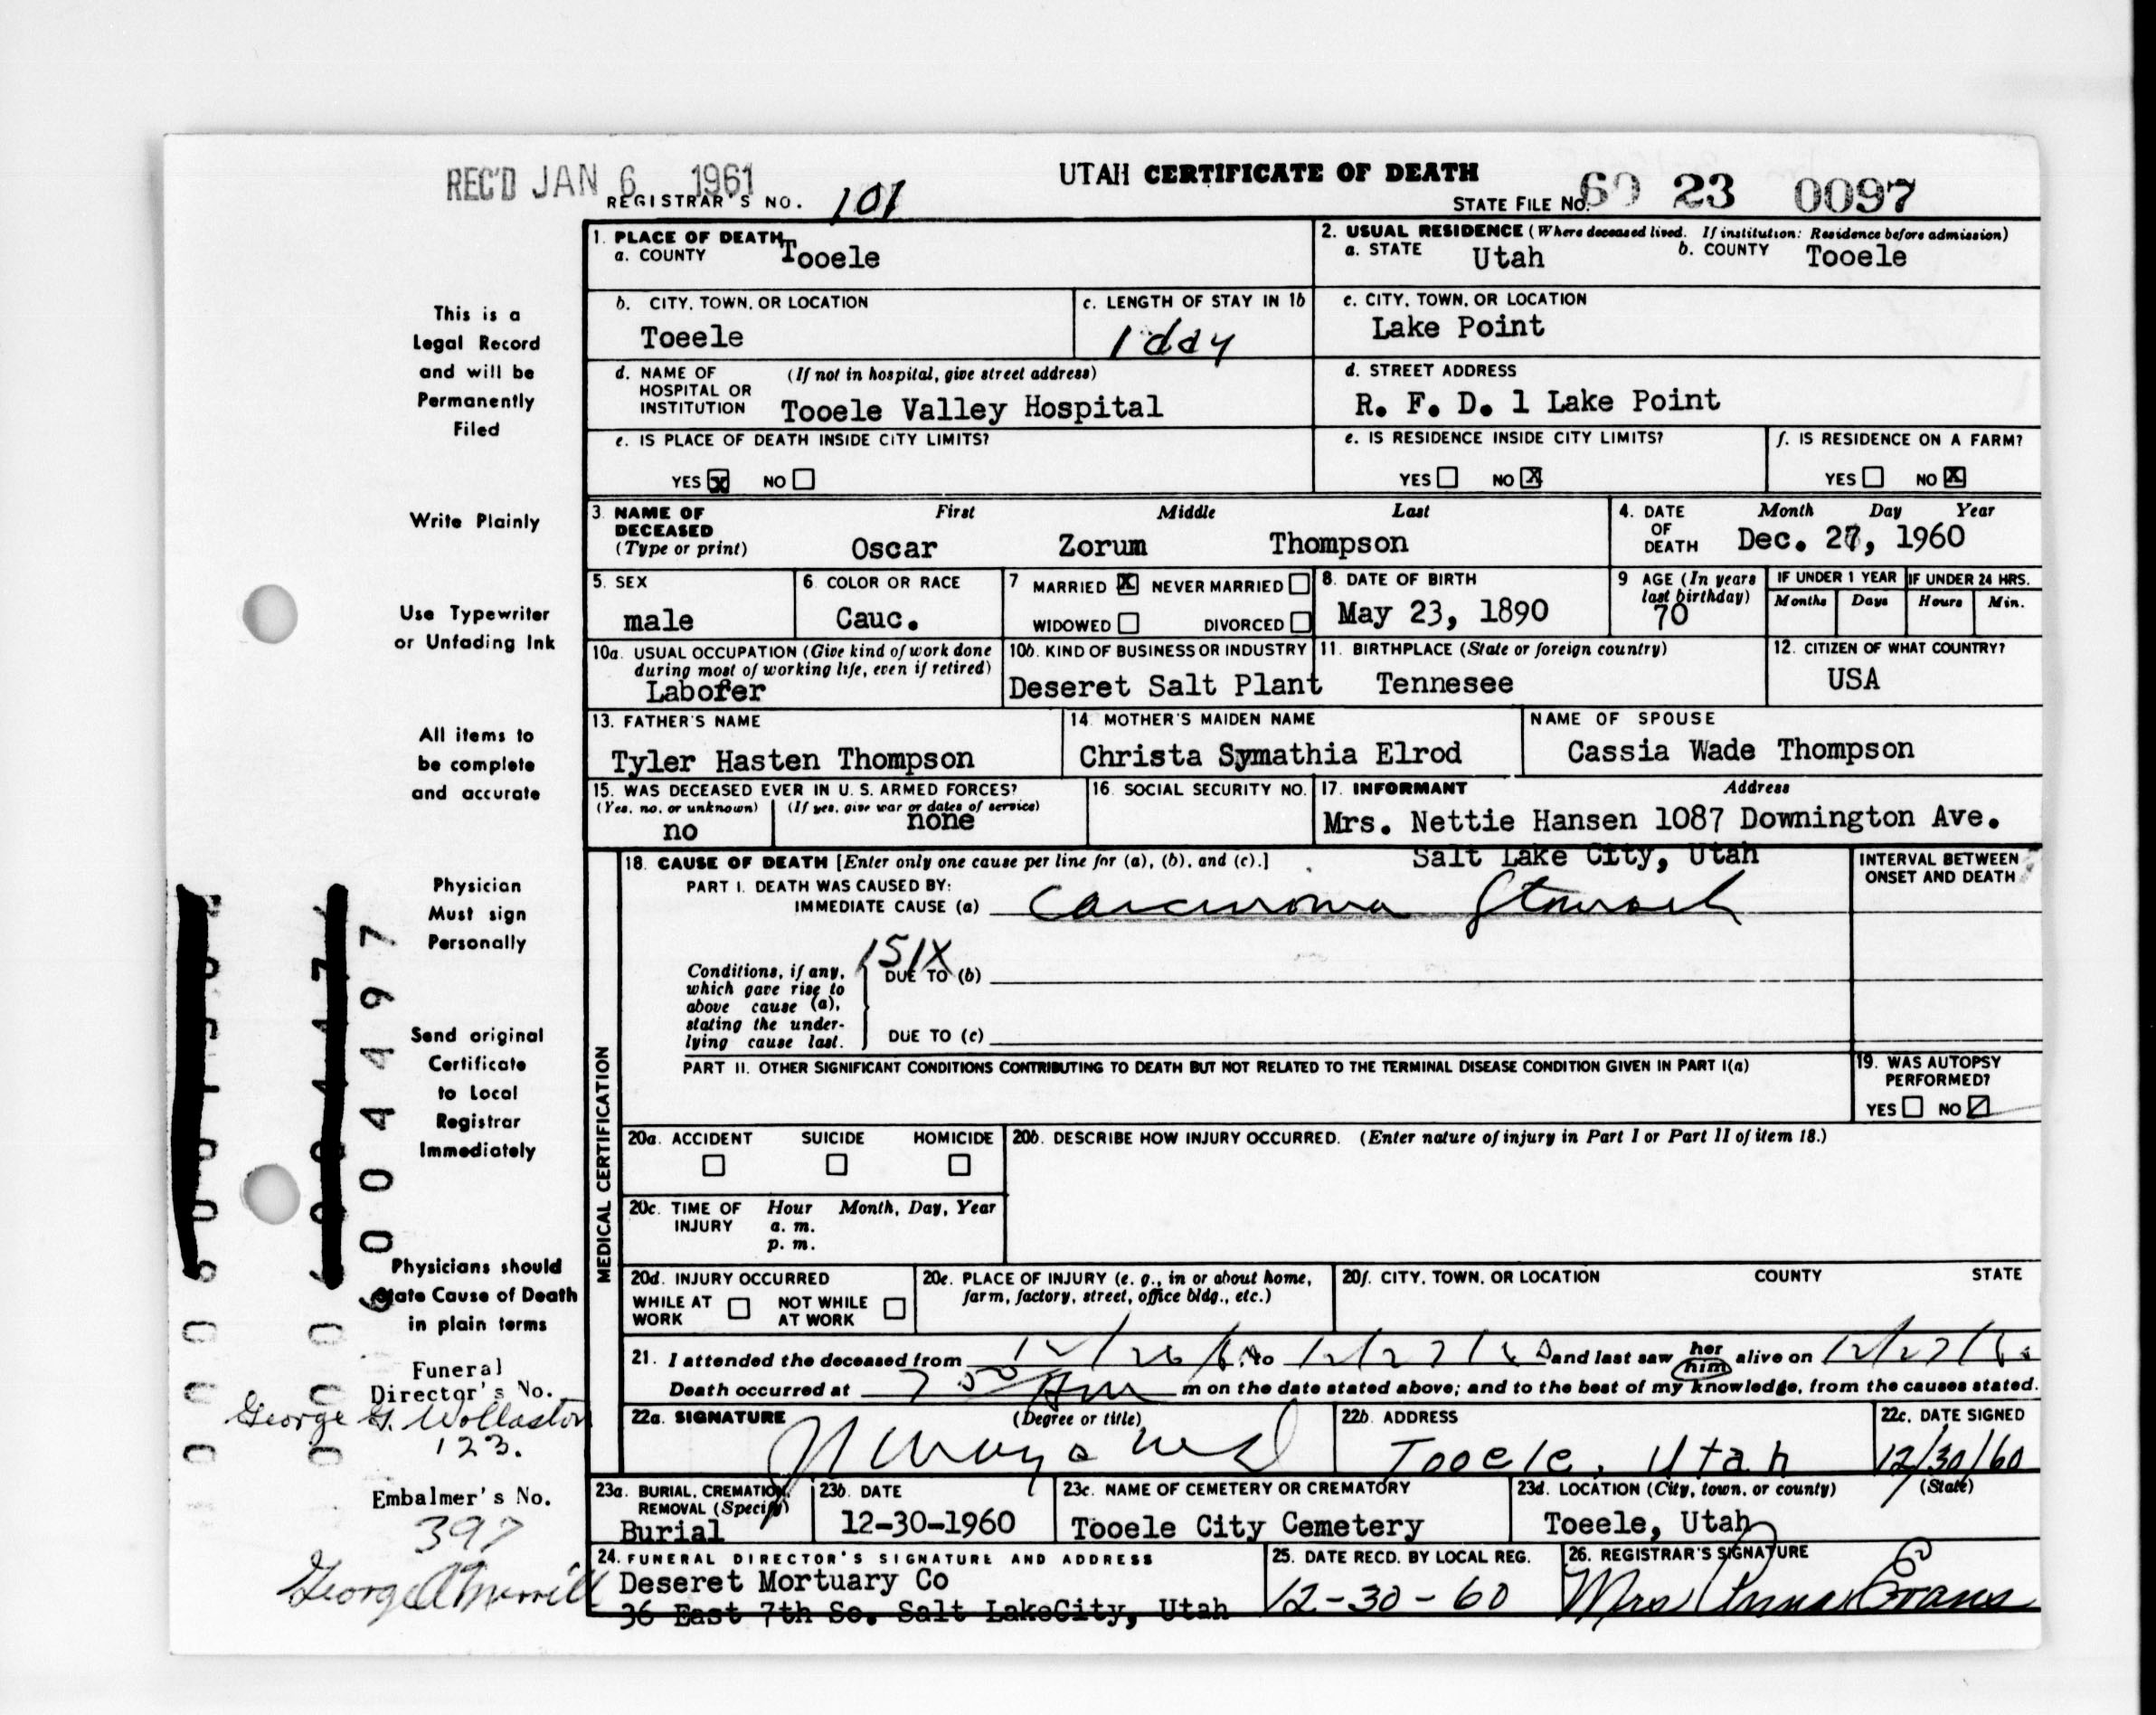 REC'D JAN 6 1961
UTAH CERTIFICATE OF DEATH
REGISTRAR'S NO. 101
STATE FILE NO. 60 23 0097
1. PLACE OF DEATH
a. COUNTY Tooele
2. USUAL RESIDENCE (Where deceased lived. If institution: Residence before admission)
a. STATE Utah b. COUNTY Tooele
b. CITY, TOWN, OR LOCATION
Toeele
c. LENGTH OF STAY IN 1b
1 day
c. CITY, TOWN, OR LOCATION
Lake Point
d. NAME OF HOSPITAL OR INSTITUTION (If not in hospital, give street address)
Tooele Valley Hospital
d. STREET ADDRESS
R. F. D. 1 Lake Point
e. IS PLACE OF DEATH INSIDE CITY LIMITS?
YES X NO
e. IS RESIDENCE INSIDE CITY LIMITS?
YES NO X
f. IS RESIDENCE ON A FARM?
YES NO X
3. NAME OF DECEASED (Type or print)
First Middle Last
Oscar Zorum Thompson
4. DATE OF DEATH Month Day Year
Dec. 27, 1960
5. SEX
male
6. COLOR OR RACE
Cauc.
7 MARRIED X NEVER MARRIED
WIDOWED DIVORCED
8. DATE OF BIRTH
May 23, 1890
9 AGE (In years last birthday)
70
IF UNDER 1 YEAR IF UNDER 24 HRS.
Months Days Hours Min.
10a. USUAL OCCUPATION (Give kind of work done during most of working life, even if retired)
Laborer
10b. KIND OF BUSINESS OR INDUSTRY
Deseret Salt Plant
11. BIRTHPLACE (State or foreign country)
Tennesee
12. CITIZEN OF WHAT COUNTRY?
USA
13. FATHER'S NAME
Tyler Hasten Thompson
14. MOTHER'S MAIDEN NAME
Christa Symathia Elrod
NAME OF SPOUSE
Cassia Wade Thompson
15. WAS DECEASED EVER IN U. S. ARMED FORCES?
(Yes, no, or unknown) (If yes, give war or dates of service)
no none
16. SOCIAL SECURITY NO.
17. INFORMANT Address
Mrs. Nettie Hansen 1087 Downington Ave.
Salt Lake City, Utah
MEDICAL CERTIFICATION
18. CAUSE OF DEATH [Enter only one cause per line for (a), (b), and (c).]
INTERVAL BETWEEN ONSET AND DEATH
PART I. DEATH WAS CAUSED BY:
IMMEDIATE CAUSE (a) Carcinoma Stomach
151X
Conditions, if any, which gave rise to above cause (a), stating the underlying cause last.
DUE TO (b)
DUE TO (c)
PART II. OTHER SIGNIFICANT CONDITIONS CONTRIBUTING TO DEATH BUT NOT RELATED TO THE TERMINAL DISEASE CONDITION GIVEN IN PART I(a)
19. WAS AUTOPSY PERFORMED?
YES NO
20a. ACCIDENT SUICIDE HOMICIDE
20b. DESCRIBE HOW INJURY OCCURRED. (Enter nature of injury in Part I or Part II of item 18.)
20c. TIME OF INJURY Hour Month, Day, Year
a. m.
p. m.
20d. INJURY OCCURRED
WHILE AT WORK NOT WHILE AT WORK
20e. PLACE OF INJURY (e. g., in or about home, farm, factory, street, office bldg., etc.)
20f. CITY, TOWN, OR LOCATION COUNTY STATE
21. I attended the deceased from 12/26/60 to 12/27/60 and last saw her him alive on 12/27/60
Death occurred at 7 50 AM m on the date stated above; and to the best of my knowledge, from the causes stated.
22a. SIGNATURE (Degree or title)
22b. ADDRESS
Tooele, Utah
22c. DATE SIGNED
12/30/60
23a. BURIAL, CREMATION, REMOVAL (Specify)
Burial
23b. DATE
12-30-1960
23c. NAME OF CEMETERY OR CREMATORY
Tooele City Cemetery
23d. LOCATION (City, town, or county) (State)
Toeele, Utah
24. FUNERAL DIRECTOR'S SIGNATURE AND ADDRESS
Deseret Mortuary Co
36 East 7th So. Salt LakeCity, Utah
25. DATE RECD. BY LOCAL REG.
12-30-60
26. REGISTRAR'S SIGNATURE
Mrs Anna Evans
This is a
Legal Record
and will be
Permanently
Filed
Write Plainly
Use Typewriter
or Unfading Ink
All items to
be complete
and accurate
Physician
Must sign
Personally
Send original
Certificate
to Local
Registrar
Immediately
Physicians should
State Cause of Death
in plain terms
Funeral
Director's No.
George G. Wollaston
123.
Embalmer's No.
397
George A Merrill
6004497